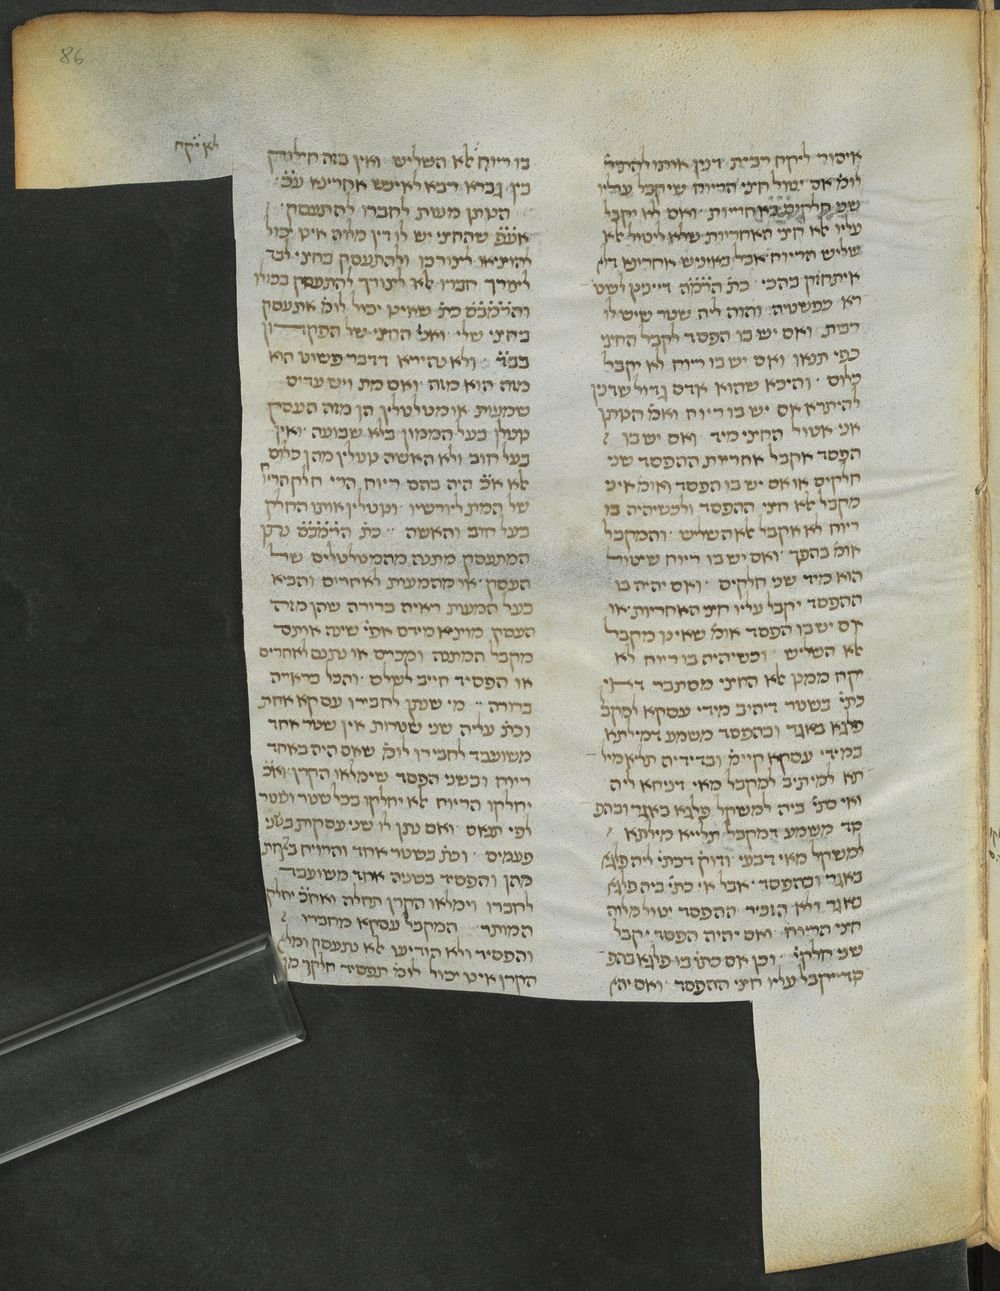 86
לאן יקח
איסור ליקח רבית דכין אותו להתיר
לומ׳ אם יטול חצי הריוח שיקבל עליו
שני חלקים באחריות ואם לא יקבל
עליו אלא חצי האחריות שלא ליטול אלא
שליש הריוח אבל באיניש אחרינא דלא
איתחזק בהכי כת׳ הר״מ״ה דיינינן לשט׳
רא כפשטיה והוה ליה שטר שיש לו
רבית ואם יש בו הפסד לקבל החצי
כפי תנאו ואם יש בו ריוח לא יקבל
כלום והיכא שהוא אדם גדול שדכין
להיתרא אם יש בו ריוח ואמ׳ הנותן
אני אטול החצי מיד ואם יש בו
הפסד אקבל אחריות ההפסד שני
חלקים או אם יש בו הפסד ואומ׳ איני
מקבל אלא חצי ההפסד ולכשיהיה בו
ריוח לא אקבל אלא השליש והמקבל
אומ׳ בהפך ואם יש בו ריוח שיטול
הוא מיד שני חלקים ואם יהיה בו
ההפסד יקבל עליו חצי האחריות או
אם יש בו הפסד אומ׳ שאינו מקבל
אלא השליש וכשיהיה בו ריוח לא
יקח ממנו אלא החצי מסתבר דאי
כתי׳ בשטר דיהיב מידי עסקא למקב׳
פלגא באגר ובהפסד משמע דמילתא
במידי עסקא קיימ׳ ובדידיה תליא מיל
תא למיתיב למקבל מאי דניחא ליה
ואי כתי׳ ביה למשקל פלגא באגר ובהפ
סד משמע דמקבל תלייא מילתא
למשקל מאי דבעי ודוק׳ דכתי׳ ליה פלגא
באגר ובהפסד אבל אי כתי׳ ביה פלגא
באגר ולא הזכיר ההפסד יטול מלוה
חצי הריוח ואם יהיה הפסד יקבל
שני חלקי׳ וכן אם כתו׳ בו פלגא בהפ
סד יקבל עליו חצי ההפסד ואם יהא
בו ריוח אלא השליש ואין בזה חילוק
בין גברא רבא לאיניש אחרינא ע״כ
הנותן מעות לחברו להתעסק
אע״פ שהחצי יש לו דין מלוה אינו יכול
להוציאו לצורכו ולהתעסק בחצי לבד
לצורך חברו אלא לצורך להתעסק בכולו
והר״מ״ב״ם כת׳ שאינו יכול לומ׳ אתעסק
בחצי שלי ואני׳ החצי של הפקדון
בב״ד ולא נהירא דדבר פשוט הוא
מזה הוא מזה ואם מת ויש עדים
שמעות או מטלטלין הן מזה העסק
נוטלן בעל הממון בלא שבועה ואין
בעל חוב ולא האשה נוטלין מהן כלום
אלא א״כ היה בהם ריוח הרי חלק הריו׳
של המת ליורשיו ונוטלין אותו החלק
בעל חוב והאשה כת׳ הר״מ״ב״ם נתן
המתעסק מתנה מהמטלטלים של
העסק או מהמעות לאחרים והביא
בעל המעות ראיה ברורה שהן מזה
העסק מוציא מידם אפי׳ שינה אונס
מקבל המתנה ומכרם או נתנם לאחרים
או הפסיד חייב לשלם והכל בראייה
ברורה מי שנתן לחבירו עסקא אחת
וכת׳ עליה שני שטרות אין שטר אחד
משועבד לחבירו לומ׳ שאם היה באחד
ריוח ובשני הפסד שימלאו הקרן ואח״כ
יחלקו הריוח אלא יחלקו בכל שטר ושטר
לפי תנאם ואם נתן לו שני עסקות בשני
פעמים וכת׳ בשטר אחד והרויח באחת
מהן והפסיד בשניה אחד משועבד
לחברו וימלאו הקרן תחלה ואח״כ יחלק׳
המותר המקבל עסקא מחבירו
והפסיד ולא הודיעו אלא נתעסק ומילא
הקרן אינו יכול לומ׳ תפסיד חלקך מן